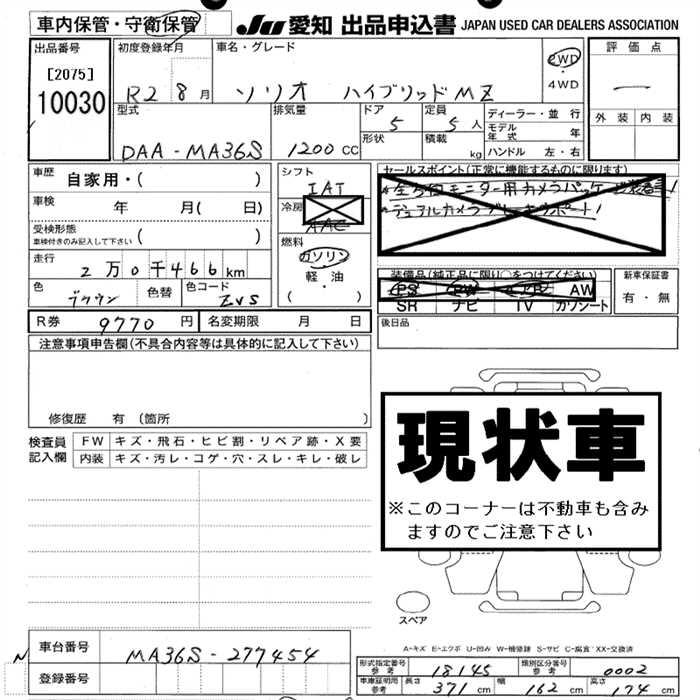 車内保管・守衛保管
JU 愛知 出品申込書 JAPAN USED CAR DEALERS ASSOCIATION
出品番号
[2075]
10030
初度登録年月
R2 8月
車名・グレード
ソリオ ハイブリッドMZ
2WD
4WD
評価点
外装 内装
型式
DAA-MA36S
排気量
1200cc
ドア
5
形状
定員
5人
積載
kg
ディーラー・並行
モデル年式 年
ハンドル 左・右
車歴 自家用・( )
車検 年 月( 日)
受検形態
車検付きのみ記入して下さい ( )
走行 2万0千466km
色 ブラウン 色替 色コード ZVS
シフト
IAT
冷房
AAC
燃料
ガソリン
軽・油
( )
セールスポイント(正常に機能するものに限ります)
全方位モニター用カメラパッケージ装着車!
デュアルカメラブレーキサポート!
装備品(純正品に限り○をつけてください)
PS PW エアB AW
SR ナビ TV カワシート
新車保証書
有・無
R券 9770円 名変期限 月 日
後日品
注意事項申告欄(不具合内容等は具体的に記入して下さい)
修復歴 有(箇所 )
検査員記入欄
FW キズ・飛石・ヒビ割・リペア跡・X要
内装 キズ・汚レ・コゲ・穴・スレ・キレ・破レ
現状車
※このコーナーは不動車も含み
ますのでご注意下さい
スペア
A-キズ E-エクボ U-凹み W-補修跡 S-サビ C-腐食 XX-交換済
車台番号 MA36S-277454
登録番号
形式指定番号 参考 18145 類別区分番号 参考 0002
車庫証明用 参考 長さ 371cm 幅 162cm 高さ 174cm